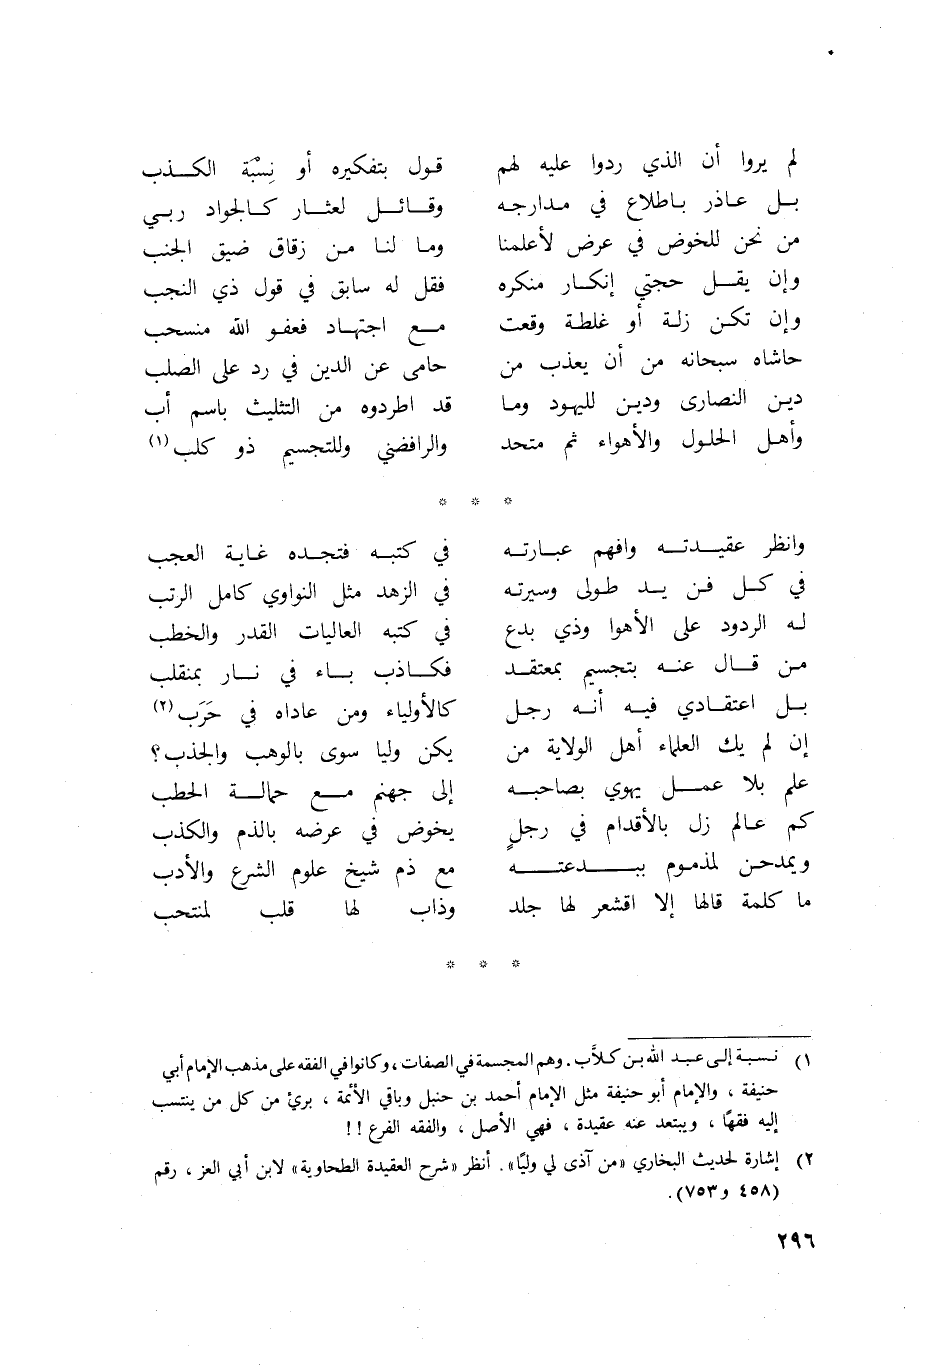 لم يروا أن الذي ردوا عليه لهم قول بتفكيره أو نِسْبَة الكذب
بل عاذر باطلاع في مدارجه وقائل لعثار كالجواد ربي
من نحن للخوض في عرض لأعلمنا وما لنا من زقاق ضيق الجنب
وإن يقل حجتي إنكار منكره فقل له سابق في قول ذي النجب
وإن تكن زلة أو غلطة وقعت مع اجتهاد فعفو الله منسحب
حاشاه سبحانه من أن يعذب من حامى عن الدين في رد على الصلب
دين النصارى ودين لليهود وما قد اطردوه من التثليث باسم أب
وأهل الحلول والأهواء ثم متحد والرافضي وللتجسيم ذو كلب(١)
* * *
وانظر عقيدته وافهم عبارته في كتبه فتجده غاية العجب
في كل فن يد طولى وسيرته في الزهد مثل النواوي كامل الرتب
له الردود على الأهوا وذي بدع في كتبه العاليات القدر والخطب
من قال عنه بتجسيم بمعتقد فكاذب باء في نار بمنقلب
بل اعتقادي فيه أنه رجل كالأولياء ومن عاداه في حَرَب(٢)
إن لم يك العلماء أهل الولاية من يكن وليا سوى بالوهب والجذب؟
علم بلا عمل يهوي بصاحبه إلى جهنم مع حمالة الحطب
كم عالم زل بالأقدام في رجلٍ يخوض في عرضه بالذم والكذب
ويمدحن لمذموم ببدعته مع ذم شيخ علوم الشرع والأدب
ما كلمة قالها إلا اقشعر لها جلد وذاب لها قلب لمنتحب
* * *
١) نسبة إلى عبد الله بن كلاَّب. وهم المجسمة في الصفات، وكانوا في الفقه على مذهب الإمام أبي
حنيفة، والإمام أبو حنيفة مثل الإمام أحمد بن حنبل وباقي الأئمة، برئ من كل من ينتسب
إليه فقهًا، ويبتعد عنه عقيدة، فهي الأصل، والفقه الفرع!!
٢) إشارة لحديث البخاري «من آذى لي وليًا». أنظر «شرح العقيدة الطحاوية» لابن أبي العز، رقم
(٤٥٨ و٧٥٣).
٢٩٦